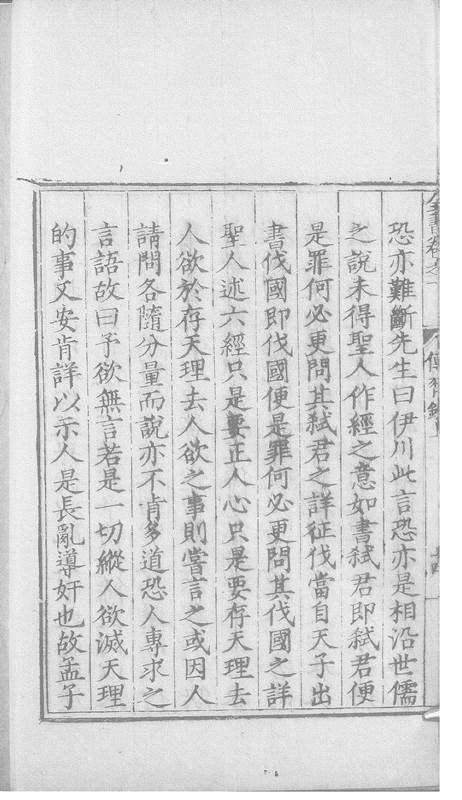 恐亦難斷先生曰伊川此言恐亦是相沿世儒
之說未得聖人作經之意如書弒君即弒君便
是罪何必更問其弒君之詳征伐當自天子出
書伐國即伐國便是罪何必更問其伐國之詳
聖人述六經只是要正人心只是要存天理去
人欲於存天理去人欲之事則嘗言之或因人
請問各隨分量而說亦不肯多道恐人專求之
言語故曰予欲無言若是一切縱人欲滅天理
的事又安肯詳以示人是長亂導奸也故孟子